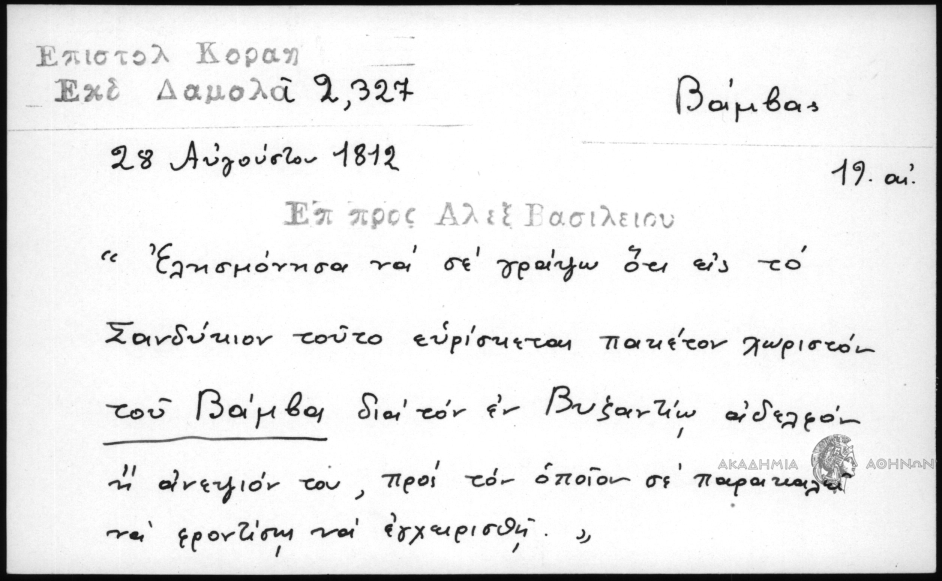 Επιστολ Κοραη
Εκδ Δαμαλᾶ 2,327
Βάμβας
28 Αὐγούστου 1812
19. αἰ.
Επ προς Αλεξ Βασιλειου
“ Ἐλησμόνησα νά σέ γράψω ὅτι εἰς τό
Σανδύκιον τοῦτο εὑρίσκεται πακέτον χωριστόν
τοῦ Βάμβα διά τόν ἐν Βυζαντίῳ ἀδελφόν
ἤ ἀνεψιόν του, πρός τόν ὁποῖον σέ παρακαλεῖ
νά φροντίσῃ νά ἐγχειρισθῇ. „
ΑΚΑΔΗΜΙΑ ΑΘΗΝΩΝ